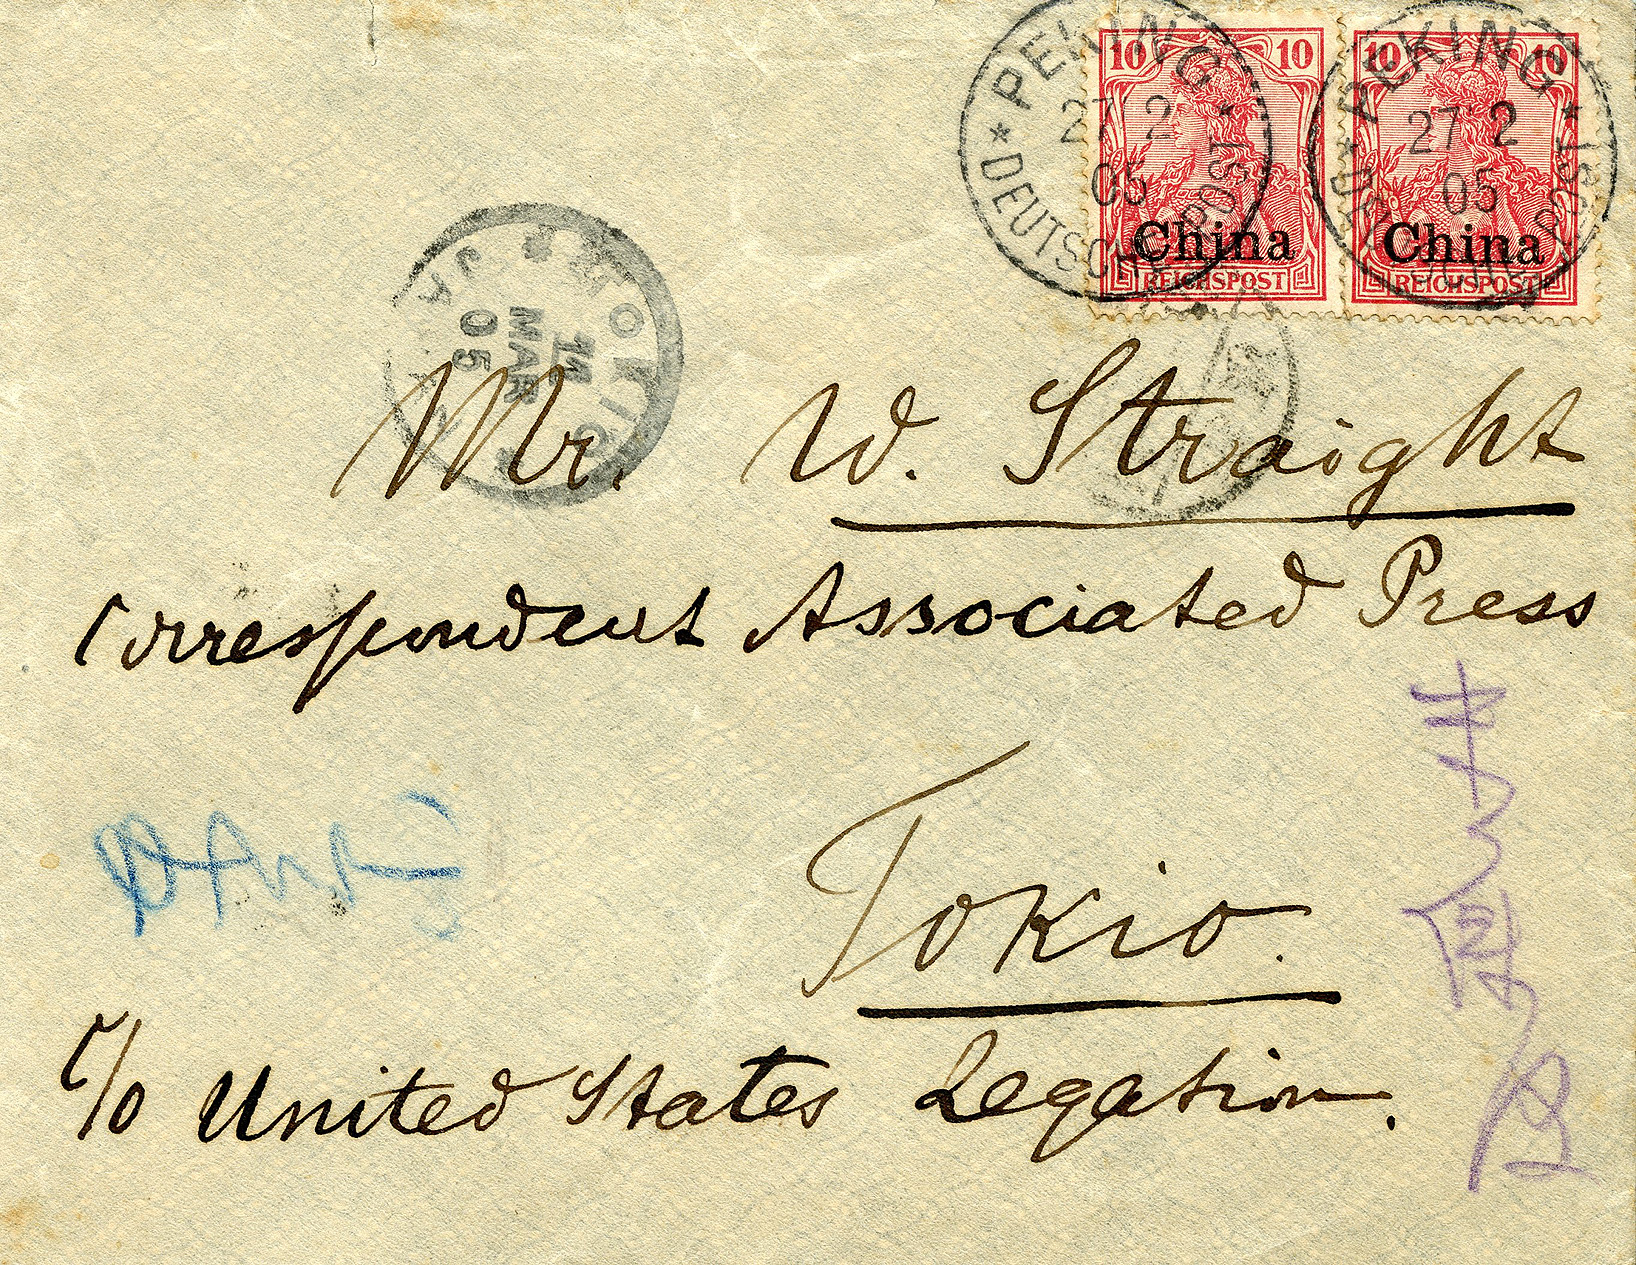 10 10 10 10
PEKING
27 2
05
DEUTSCHE POST
PEKING
27 2
05
China China
REICHSPOST REICHSPOST
TOKIO
11
MAR
05
JAPAN
Mr. W. Straight
Correspondent Associated Press
Tokio.
c/o United States Legation.